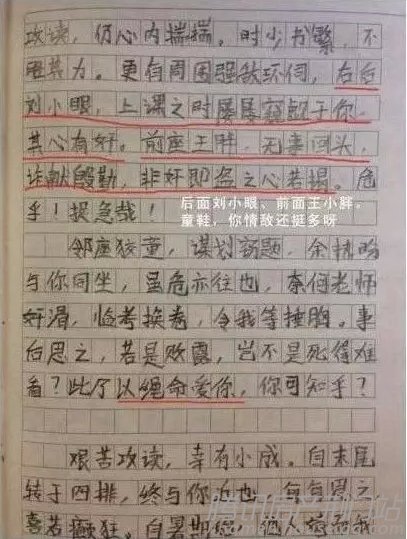 攻读，仍心内揣揣。时少书繁，不
胜其力。更有周围强敌环伺，后右
刘小眼，上课之时屡屡窥觎于你，
其心有奸。前座王胖，无事回头，
诈献殷勤，非奸即盗之心若揭。危
乎！捉急哉！
后面刘小眼、前面王小胖。
童鞋，你情敌还挺多呀
邻座狡董，谋划窃题，余
与你同坐，虽危亦往也，奈何老师
奸滑，临考换卷，令我等捶胸。事
后思之，若是败露，岂不是死得难
看？此乃以缠命爱你，你可知乎？
艰苦攻读，幸有小成。自末尾
转于四排，终与你
喜若癫狂。自暑期